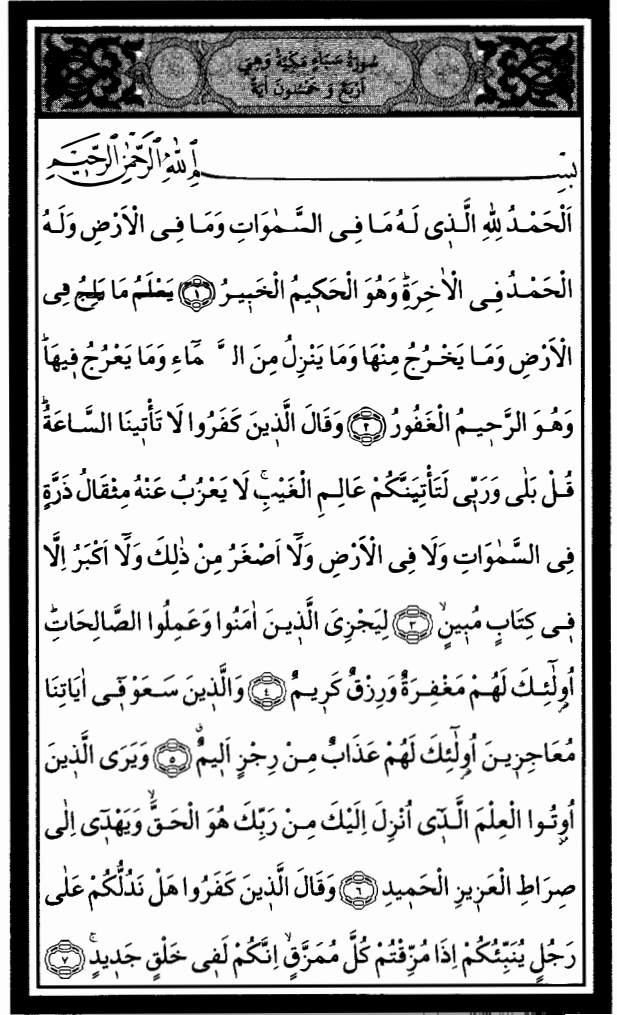 سُورَةُ سَبَأٍ مَكِّيَّةٌ وَهِيَ
اَرْبَعٌ وَ خَمْسُونَ اٰيَةً
بِسْـــــمِ اللّٰهِ الرَّحْمٰنِ الرَّحٖيمِ
اَلْحَمْدُ لِلّٰهِ الَّذٖى لَهُ مَا فِى السَّمٰوَاتِ وَمَا فِى الْاَرْضِ وَلَهُ
الْحَمْدُ فِى الْاٰخِرَةِؕ وَهُوَ الْحَكٖيمُ الْخَبٖيرُ ﴿١﴾ يَعْلَمُ مَا يَلِجُ فِى
الْاَرْضِ وَمَا يَخْرُجُ مِنْهَا وَمَا يَنْزِلُ مِنَ ال َّ مَٓاءِ وَمَا يَعْرُجُ فٖيهَاؕ
وَهُوَ الرَّحٖيمُ الْغَفُورُ ﴿٢﴾ وَقَالَ الَّذٖينَ كَفَرُوا لَا تَأْتٖينَا السَّاعَةُؕ
قُلْ بَلٰى وَرَبّٖى لَتَأْتِيَنَّكُمْ عَالِمِ الْغَيْبِۚ لَا يَعْزُبُ عَنْهُ مِثْقَالُ ذَرَّةٍ
فِى السَّمٰوَاتِ وَلَا فِى الْاَرْضِ وَلَٓا اَصْغَرُ مِنْ ذٰلِكَ وَلَٓا اَكْبَرُ اِلَّا
فٖى كِتَابٍ مُبٖينٍۙ ﴿٣﴾ لِيَجْزِىَ الَّذٖينَ اٰمَنُوا وَعَمِلُوا الصَّالِحَاتِؕ
اُولٰٓئِكَ لَهُمْ مَغْفِرَةٌ وَرِزْقٌ كَرٖيمٌ ﴿٤﴾ وَالَّذٖينَ سَعَوْ فٖٓى اٰيَاتِنَا
مُعَاجِزٖينَ اُولٰٓئِكَ لَهُمْ عَذَابٌ مِنْ رِجْزٍ اَلٖيمٌ ﴿٥﴾ وَيَرَى الَّذٖينَ
اُوتُوا الْعِلْمَ الَّذٖٓى اُنْزِلَ اِلَيْكَ مِنْ رَبِّكَ هُوَ الْحَقَّۙ وَيَهْدٖٓى اِلٰى
صِرَاطِ الْعَزٖيزِ الْحَمٖيدِ ﴿٦﴾ وَقَالَ الَّذٖينَ كَفَرُوا هَلْ نَدُلُّكُمْ عَلٰى
رَجُلٍ يُنَبِّئُكُمْ اِذَا مُزِّقْتُمْ كُلَّ مُمَزَّقٍۙ اِنَّكُمْ لَفٖى خَلْقٍ جَدٖيدٍۚ ﴿٧﴾